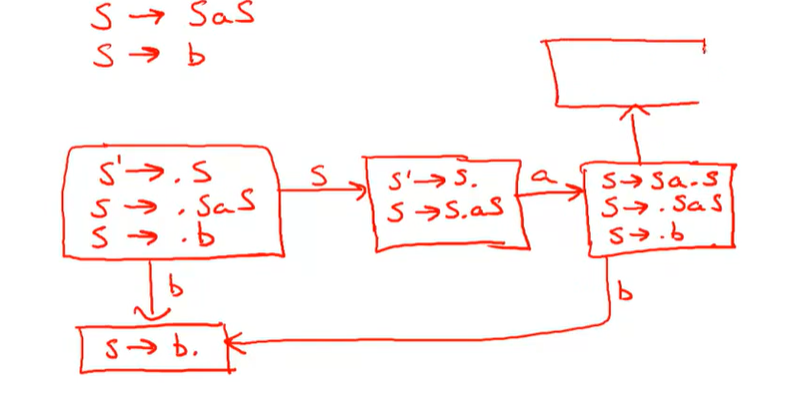 S → SaS
S → b
S' → .S
S → .SaS
S → .b
S
S' → S.
S → S.aS
a
S → Sa.S
S → .SaS
S → .b
b
b
S → b.